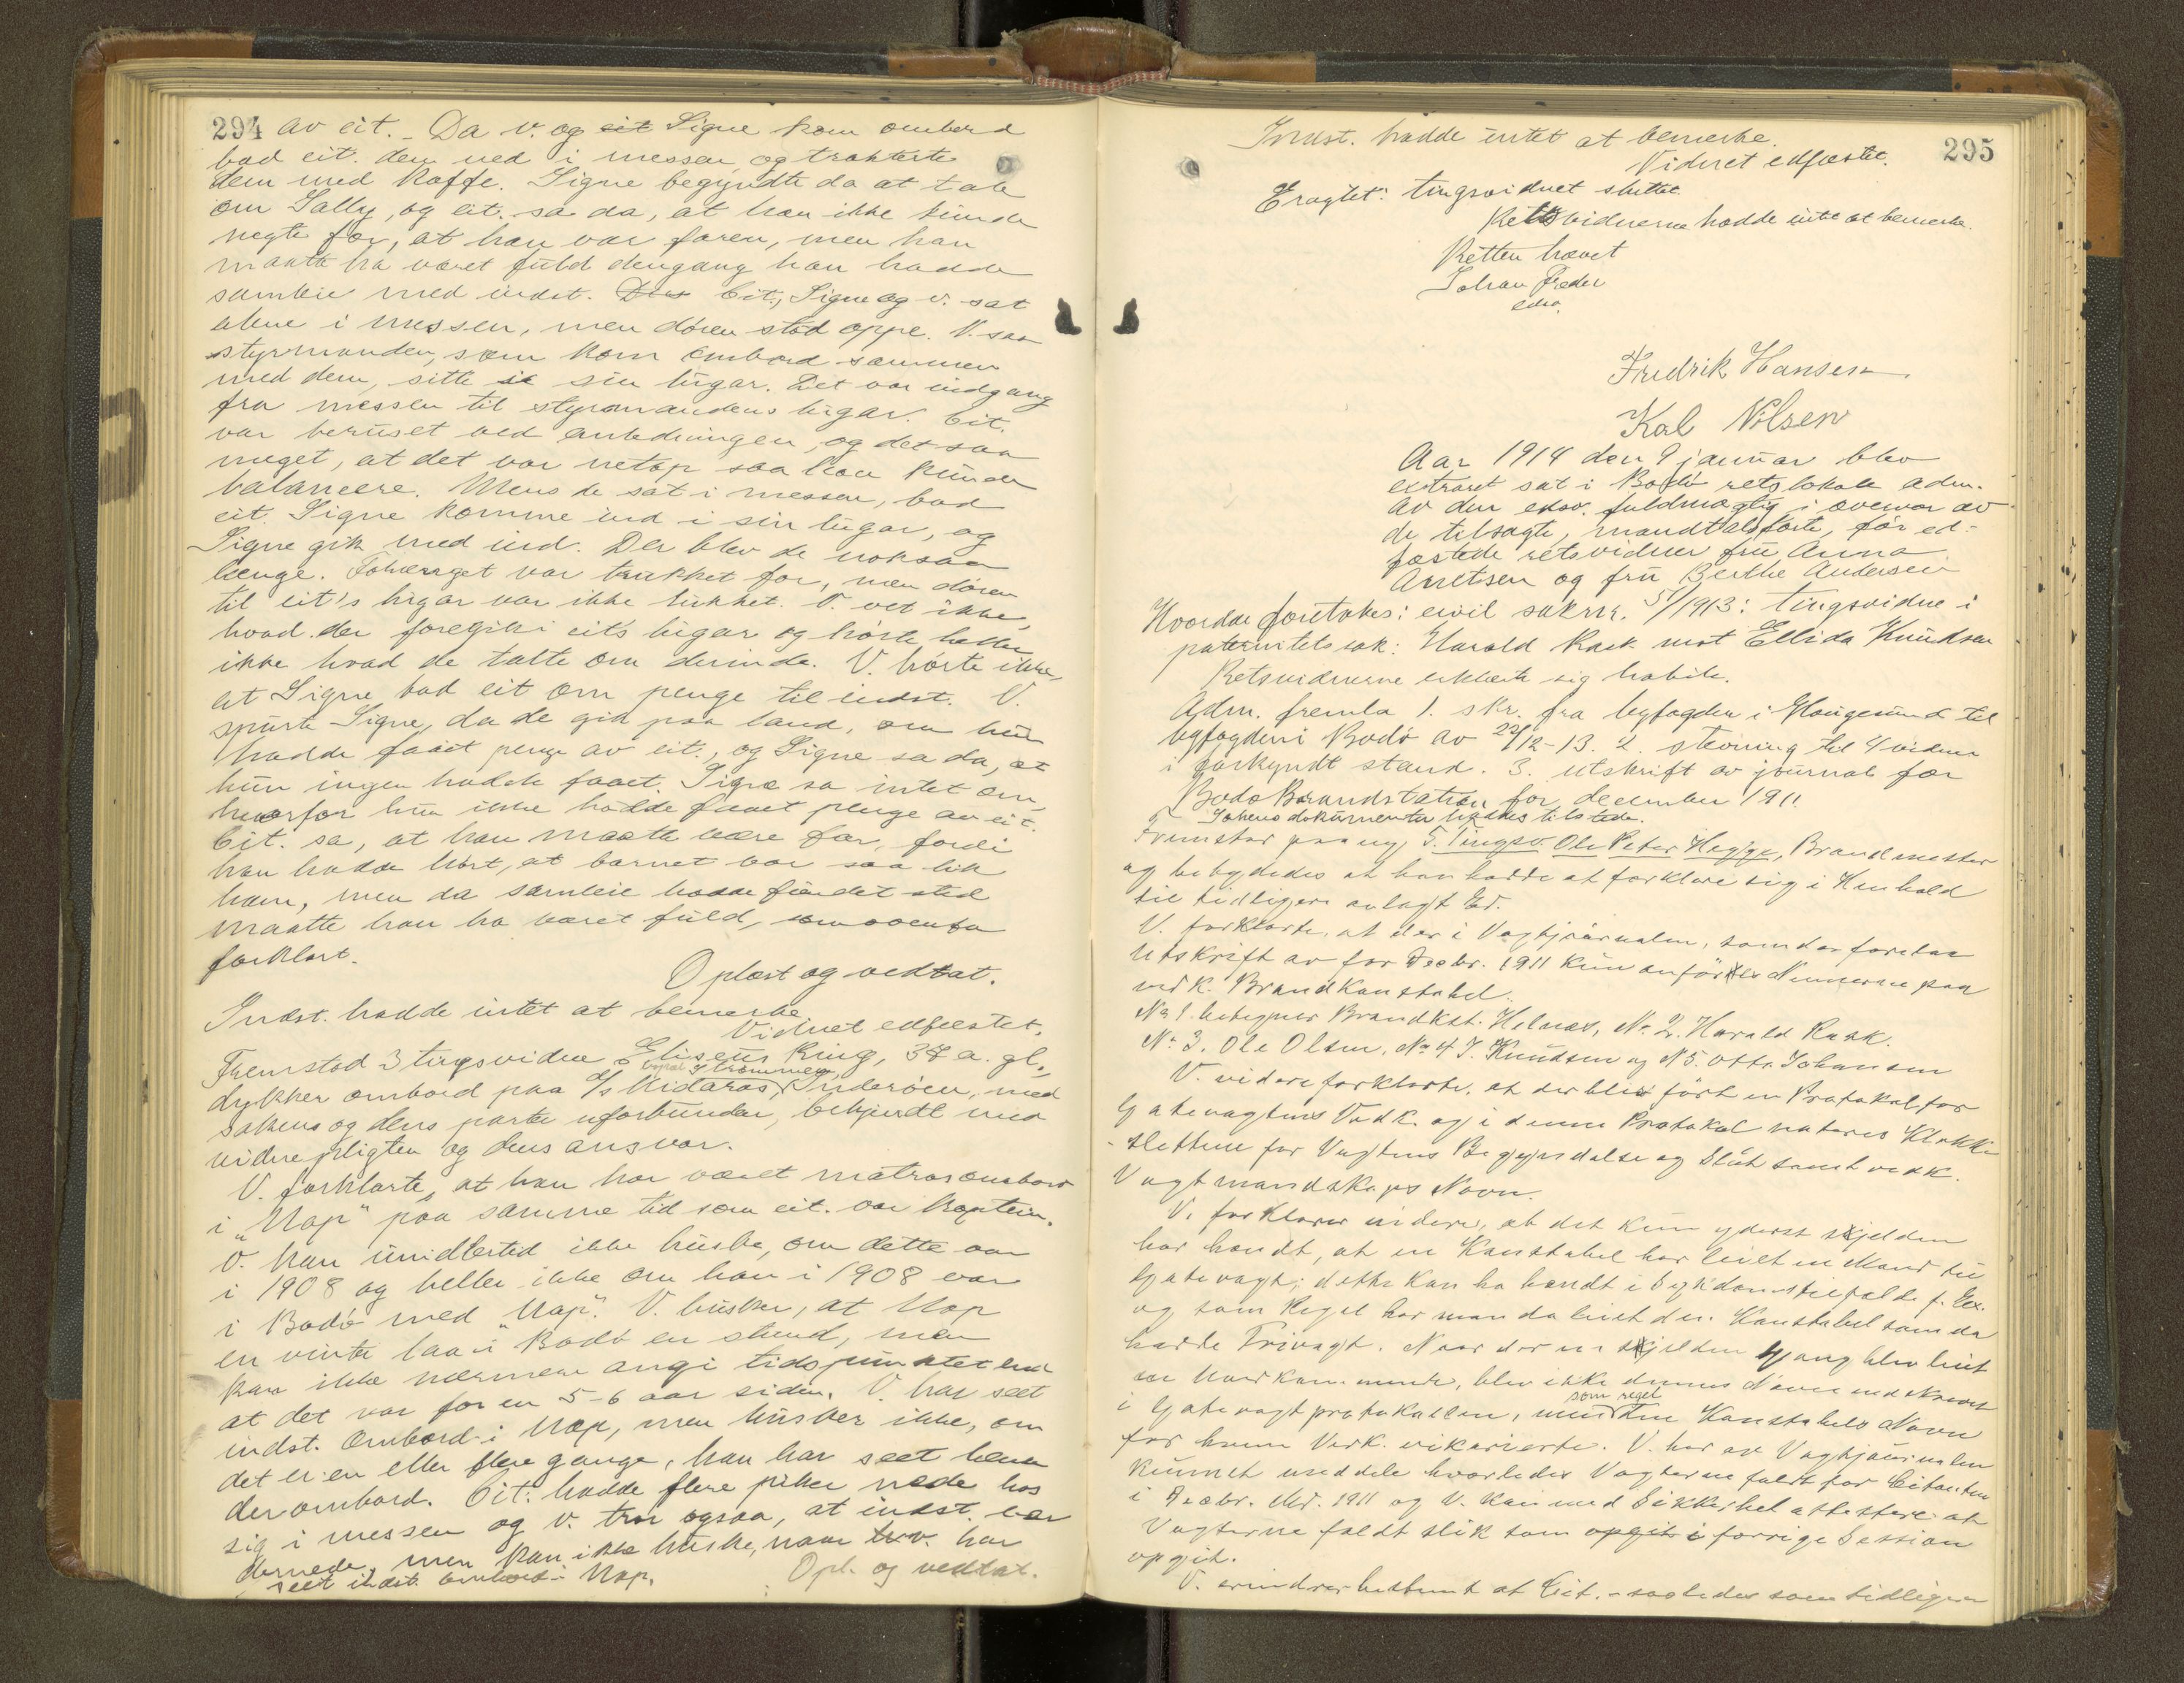 294 av cit. - Da v. og cit Signe kom ombord
bad cit. dem ned i messen og trakterte
dem med kaffe. Signe begyndte da at tale
om Sally, og cit. sa da, at han ikke kunde
negte for, at han var faren, men han
maatte ha været fuld dengang han hadde
samleie med indst. Des Cit., Signe og v. sat
alene i messen, men døren stod oppe. V. saa
styrmanden, som kom ombord sammen
med dem, sitte i sin lugar. Det var indgang
fra messen til styrmandens lugar. Cit.
var beruset ved anledningen, og det saa
meget, at det var netop saa han kunde
balancere. Mens de sat i messen, bad
cit. Signe komme ind i sin lugar, og
Signe gik med ind. Der blev de noksaa
længe. Forhænget var trukket for, men døren
til cit's lugar var ikke lukket. V. vet ikke,
hvad der foregik i cit's lugar og hørte heller
ikke hvad de talte om derinde. V. hørte ikke,
at Signe bad cit om penge til indst. V.
spurte Signe, da de gik paa land, om hun
hadde faaet penge av cit., og Signe sa da, at
hun ingen hadde faaet. Signe sa intet om,
hvorfor hun ikke hadde faaet penge av cit.
Cit. sa, at han maatte være far, fordi
han hadde hørt, at barnet var saa lik
ham, men da samleie hadde fundet sted
maatte han ha været fuld, som ovenfor
forklart.
Oplæst og vedtat.
Indst. hadde intet at bemerke.
Vidnet edfæstet.
Fremstod 3 tingsvidne Eliseus Ring, 37 a. gl.,
dykker ombord paa S/S Nidaros, Inderøen, med
sakens og dens parter uforbunden, bekjendt med
vidnepligten og dens ansvar.
V. forklarte, at han har været matros ombord
i "Nap" paa samme tid som cit. var kaptein.
V. kan imidlertid ikke huske, om dette var
i 1908 og heller ikke om han i 1908 var
i Bodø med "Nap". V. husker, at Nap
en vinter laa i Bodø en stund, men
kan ikke nærmere angi tidspunktet end
at det var for en 5-6 aar siden. V. har seet
indst. ombord i Nap, men husker ikke, om
det er en eller flere gange, han har seet hende
der ombord. Cit. hadde flere piker nede hos
sig i messen og v. tror ogsaa, at indst. var
dernede, men kan ikke huske, naar v. har
seet indst. ombord i Nap.
Opl. og vedtat.
295
Indst. hadde intet at bemerke.
Vidnet edfæstet.
Eragtet: tingsvidnet sluttet
Retsvidnerne hadde intet at bemerke.
Retten hævet
Johan
edsv.
Fredrik Hansen
Karl Nilsen
Aar 1914 den 9 januar blev
extraret sat i Bodø retslokale adm.
av den edsv. fuldmægtig i overvær av
de tilsagte, mandtalsførte, før ed-
fæstede retsvidner fru Anna
Arntsen og fru Berthe Andersen
Hvorda foretokes: civil sak nr. 51/1913: Tingsvidne i
paternitetssak: Harald Rask mot Ellida Knudsen
Retsvidnerne erklærte sig habile.
Adm. fremla 1. skr. fra byfogden i Haugesund til
byfogden i Bodø av 22/12-13. 2. stevning til 4 vidner
i forkyndt stand. 3. utskrift av journal for
Bodø Brandstation for december 1911
Sakens dokumenter haddes tilstede.
Fremstod paany 5. Tingsv. Ole Peter Hegge, Brandmester
og betydedes at han hadde at forklare sig i Henhold
til tidligere avlagt Ed.
V. forklarte, at der i Vagtjournalen, som der foretas
Utskrift av for Decbr. 1911 kun anføres Numerne paa
vedk. Brandkonstabel.
No 1. betegner Brandkst. Helnæs, No 2. Harald Rask.
No 3. Ole Olsen, No 4 J. Knudsen og No 5. Otto Johansen
V. videre forklarte, at der blev ført en Protokol for
Gatevagtens Vedk. og i denne Protokol noteres Klokke-
slettene for Vagtens Begyndelse og Slut samt vedk.
Vagtmandskaps Navn.
V. forklarer videre, at det kun yderst sjelden
har hændt, at en Konstabel har leiet en Mand til
Gatevagt; dette kan ha hændt i Sygdomstilfælde f. Ex.
og som Regel har man da leiet den Konstabel som da
hadde Frivagt. Naar der en sjelden Gang blev leiet
en Uvedkommende, blev ikke dennes Navn nedskrevet
i Gatevagtprotokollen, men som regel den Konstabels Navn
for hvem Vedk. vikarierte. V. har av Vagtjournalen
kunnet meddele hvorledes Vagterne faldt for Citanten
i Decbr. Md. 1911 og V. kan med Sikkerhet attestere at
Vagterne faldt slik som opgit i forrige Session
opgit.
V. erindrer bestemt at Cit. - saaledes som tidligere